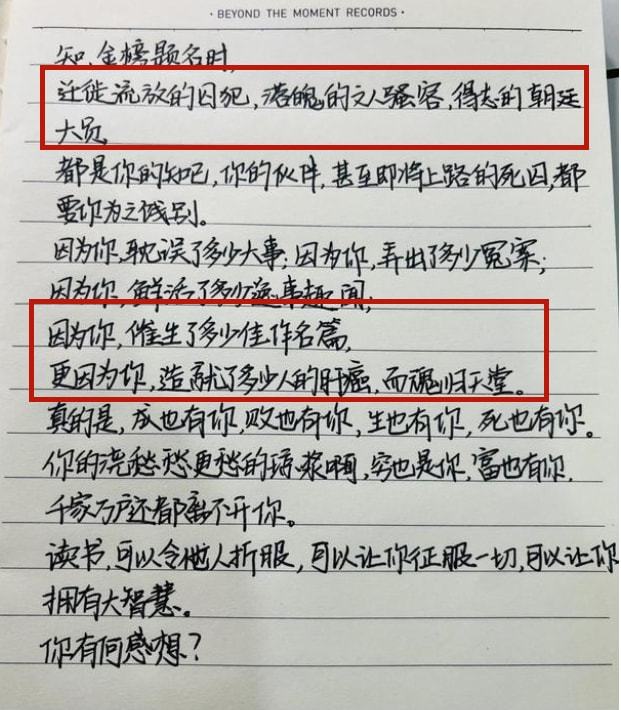 · BEYOND THE MOMENT RECORDS ·
知,金榜题名时,
迁徙流放的囚犯,落魄的文人骚客,得志的朝廷
大员,
都是你的知已,你的伙伴,甚至即将上路的死囚,都
要你为之饯别。
因为你,耽误了多少大事;因为你,弄出了多少冤案;
因为你,鲜活了多少逸事趣闻;
因为你,催生了多少佳作名篇,
更因为你,造就了多少人的肝癌,而魂归天堂。
真的是,成也有你,败也有你,生也有你,死也有你。
你的浇愁愁更愁的琼浆啊,穷也是你,富也有你,
千家万户还都离不开你。
读书,可以令他人折服,可以让你征服一切,可以让你
拥有大智慧。
你有何感想?